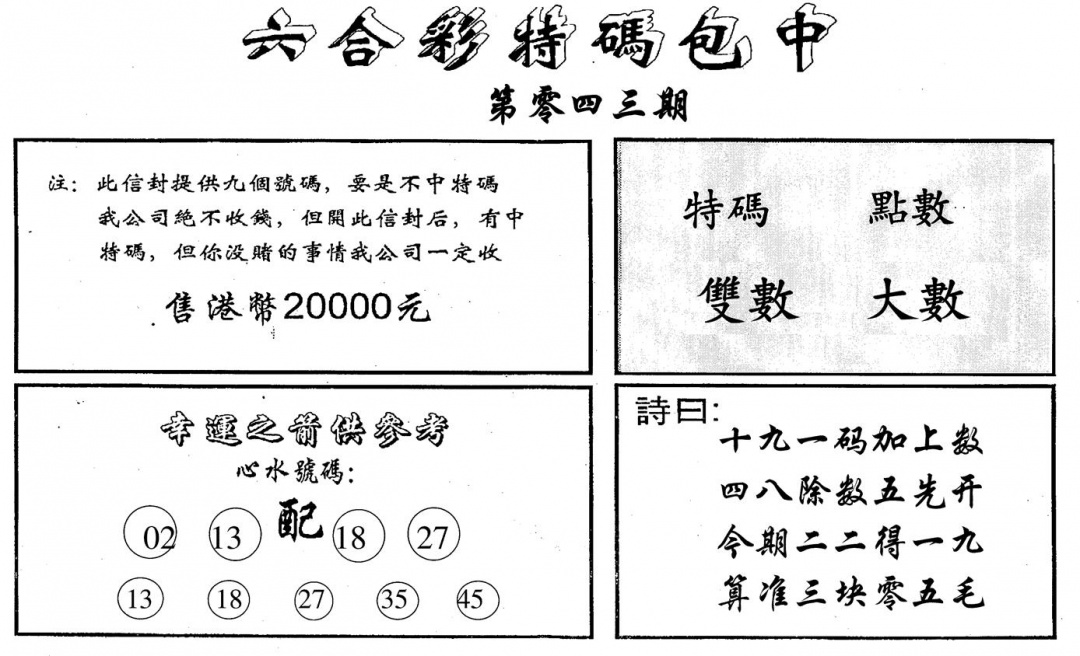 六合彩特碼包中
第零四三期
注：此信封提供九個號碼，要是不中特碼
我公司絕不收錢，但開此信封后，有中
特碼，但你没賭的事情我公司一定收
售港幣20000元
特碼 點數
雙數 大數
幸運之箭供參考
心水號碼：
配
02 13 18 27
13 18 27 35 45
詩曰：
十九一码加上数
四八除数五先开
今期二二得一九
算准三块零五毛